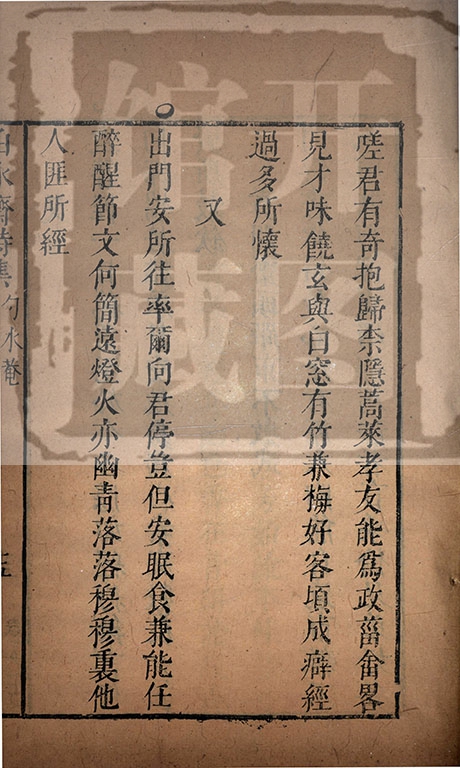 嗟君有奇抱歸柰隱蒿萊孝友能爲政菑畬畧
見才味饒玄與白窓有竹兼梅好客頃成癖經
過多所懷
又
○出門安所往率爾向君停豈但安眠食兼能任
醉醒節文何簡遠燈火亦幽青落落穆穆裏他
人匪所經
白水齋詩集 勺水菴
开图
馆藏